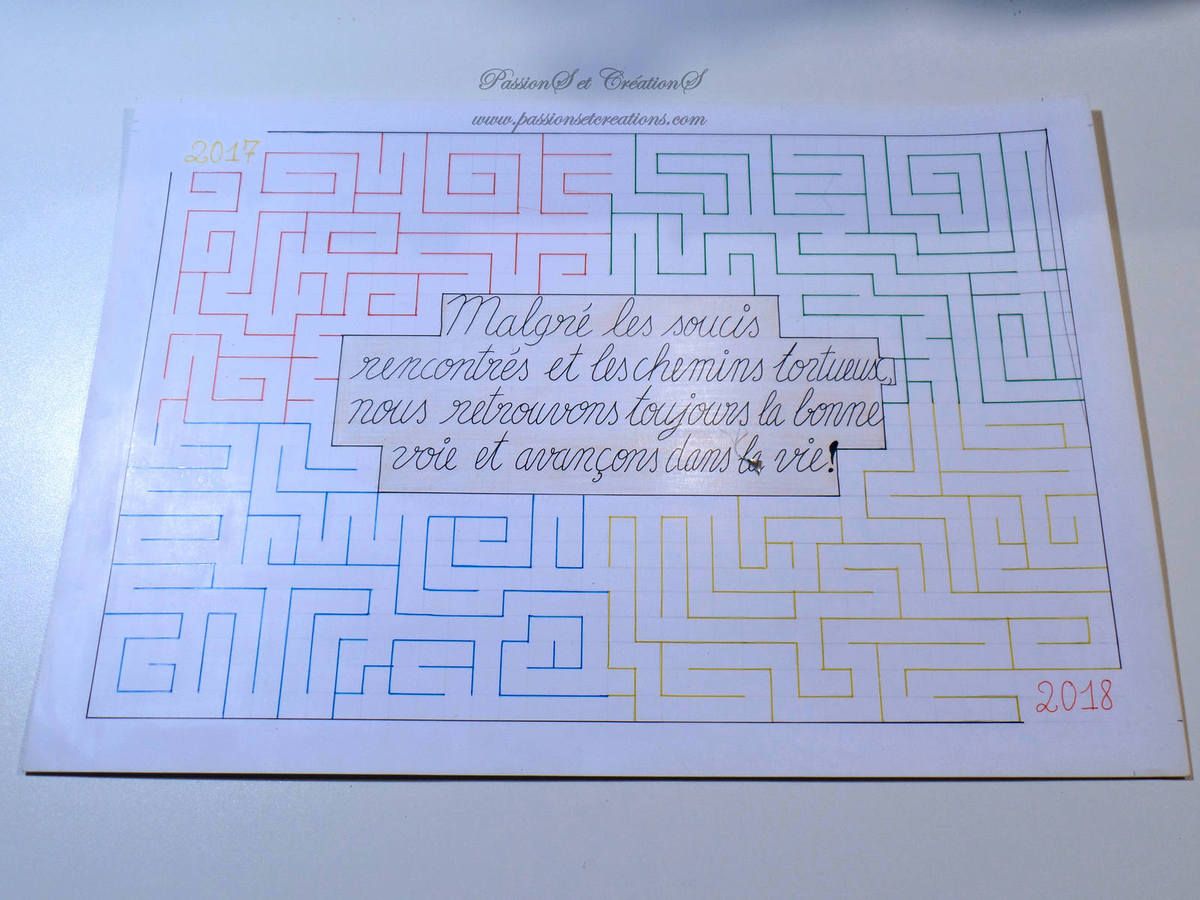 PassionS et CréationS
www.passionsetcreations.com
2017
Malgré les soucis
rencontrés et les chemins tortueux,
nous retrouvons toujours la bonne
voie et avançons dans la vie!
2018